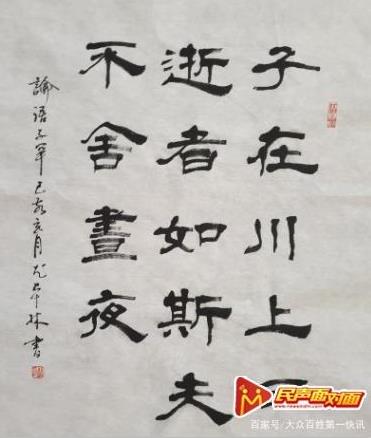 子在川上
逝者如斯夫
不舍晝夜
論語子罕 己亥亥月 林書
民声面对面
百家号/大众百姓第一快讯